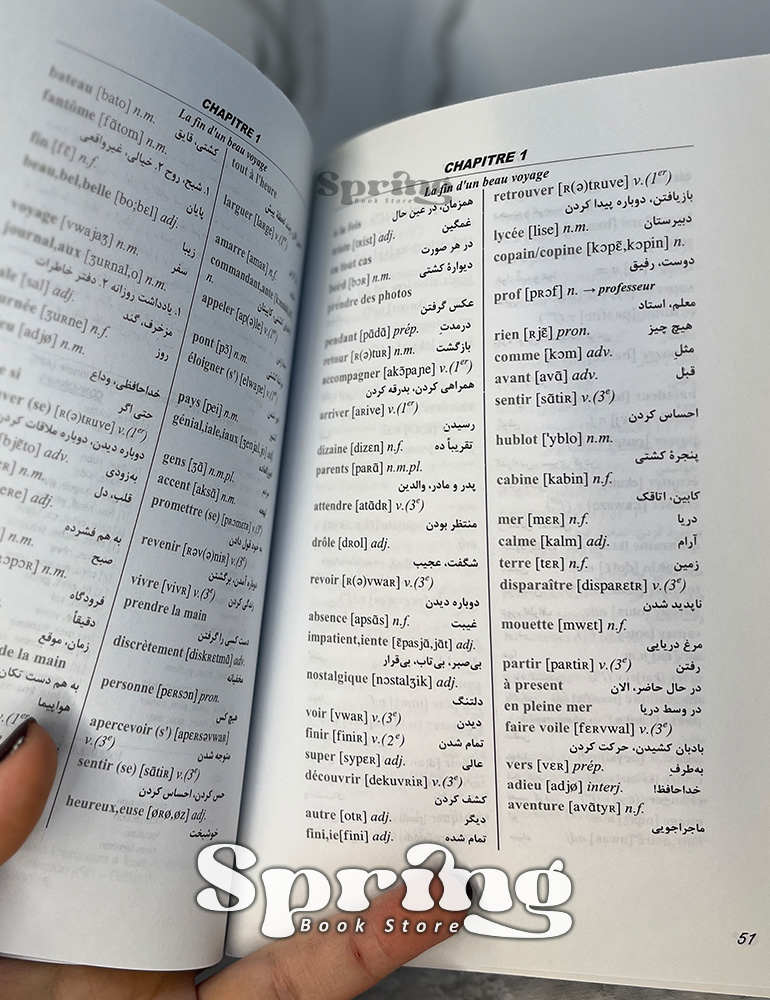 CHAPITRE 1
La fin d'un beau voyage
bateau [bato] n.m.
کشتی، قایق
fantôme [fɑ̃tom] n.m.
۱. شبح، روح ۲. خیالی، غیرواقعی
fin [fɛ̃] n.f.
پایان
beau,bel,belle [bo;bɛl] adj.
زیبا
voyage [vwajaʒ] n.m.
سفر
journal,aux [ʒuʀnal,o] n.m.
۱. یادداشت روزانه ۲. دفتر خاطرات
ale [sal] adj.
مزخرف، گند
rnée [ʒuʀne] n.f.
روز
eu [adjø] n.m.
خداحافظی، وداع
e si
حتی اگر
uver (se) [ʀ(ə)tʀuve] v.(1er)
دوباره دیدن، دوباره ملاقات کردن
[bjɛ̃to] adv.
به‌زودی
n.m.
قلب، دل
adj.
به هم فشرده
صبح
n.m.
فرودگاه
دقیقاً
زمان، موقع
de la main
به هم دست تکان
هواپیما
v.(1er)
tout à l'heure
larguer [laʀge] v.(1er)
amarre [amaʀ] n.f.
commandant,ante
n.
appeler [ap(ə)le] v.(1er)
pont [pɔ̃] n.m.
éloigner (s') [elwaɲe] v.(1er)
pays [pei] n.m.
génial,iale,iaux [ʒenjal,jo] adj.
gens [ʒɑ̃] n.m.pl.
accent [aksɑ̃] n.m.
promettre (se) [pʀɔmɛtʀ] v.(3e)
به خود قول دادن
revenir [ʀəv(ə)niʀ] v.(3e)
دوباره آمدن، برگشتن
vivre [vivʀ] v.(3e)
زندگی کردن
prendre la main
دست کسی را گرفتن
discrètement [diskʀɛtmɑ̃] adv.
مخفیانه
personne [pɛʀsɔn] pron.
هیچ کس
apercevoir (s') [apɛʀsəvwaʀ]
v.(3e)
متوجه شدن
sentir (se) [sɑ̃tiʀ] v.(3e)
حس کردن، احساس کردن
heureux,euse [øʀø,øz] adj.
خوشبخت
CHAPITRE 1
La fin d'un beau voyage
Spring
Book Store
à la fois
همزمان، در عین حال
triste [tʀist] adj.
غمگین
en tout cas
در هر صورت
bord [bɔʀ] n.m.
دیوارهٔ کشتی
prendre des photos
عکس گرفتن
pendant [pɑ̃dɑ̃] prép.
درمدت
retour [ʀ(ə)tuʀ] n.m.
بازگشت
accompagner [akɔ̃paɲe] v.(1er)
همراهی کردن، بدرقه کردن
arriver [aʀive] v.(1er)
رسیدن
dizaine [dizɛn] n.f.
تقریباً ده
parents [paʀɑ̃] n.m.pl.
پدر و مادر، والدین
attendre [atɑ̃dʀ] v.(3e)
منتظر بودن
drôle [dʀol] adj.
شگفت، عجیب
revoir [ʀ(ə)vwaʀ] v.(3e)
دوباره دیدن
absence [apsɑ̃s] n.f.
غیبت
impatient,iente [ɛ̃pasjɑ̃,jɑ̃t] adj.
بی‌صبر، بی‌تاب، بی‌قرار
nostalgique [nɔstalʒik] adj.
دلتنگ
voir [vwaʀ] v.(3e)
دیدن
finir [finiʀ] v.(2e)
تمام شدن
super [sypɛʀ] adj.
عالی
découvrir [dekuvʀiʀ] v.(3e)
کشف کردن
autre [otʀ] adj.
دیگر
fini,ie[fini] adj.
تمام شده
retrouver [ʀ(ə)tʀuve] v.(1er)
بازیافتن، دوباره پیدا کردن
lycée [lise] n.m.
دبیرستان
copain/copine [kɔpɛ̃,kɔpin] n.
دوست، رفیق
prof [pʀɔf] n. → professeur
معلم، استاد
rien [ʀjɛ̃] pron.
هیچ چیز
comme [kɔm] adv.
مثل
avant [avɑ̃] adv.
قبل
sentir [sɑ̃tiʀ] v.(3e)
احساس کردن
hublot ['yblo] n.m.
پنجرهٔ کشتی
cabine [kabin] n.f.
کابین، اتاقک
mer [mɛʀ] n.f.
دریا
calme [kalm] adj.
آرام
terre [tɛʀ] n.f.
زمین
disparaître [dispaʀɛtʀ] v.(3e)
ناپدید شدن
mouette [mwɛt] n.f.
مرغ دریایی
partir [paʀtiʀ] v.(3e)
رفتن
à present
در حال حاضر، الان
en pleine mer
در وسط دریا
faire voile [fɛʀvwal] v.(3e)
بادبان کشیدن، حرکت کردن
vers [vɛʀ] prép.
به‌طرف
adieu [adjø] interj.
خداحافظ!
aventure [avɑ̃tyʀ] n.f.
ماجراجویی
Spring
Book Store
51